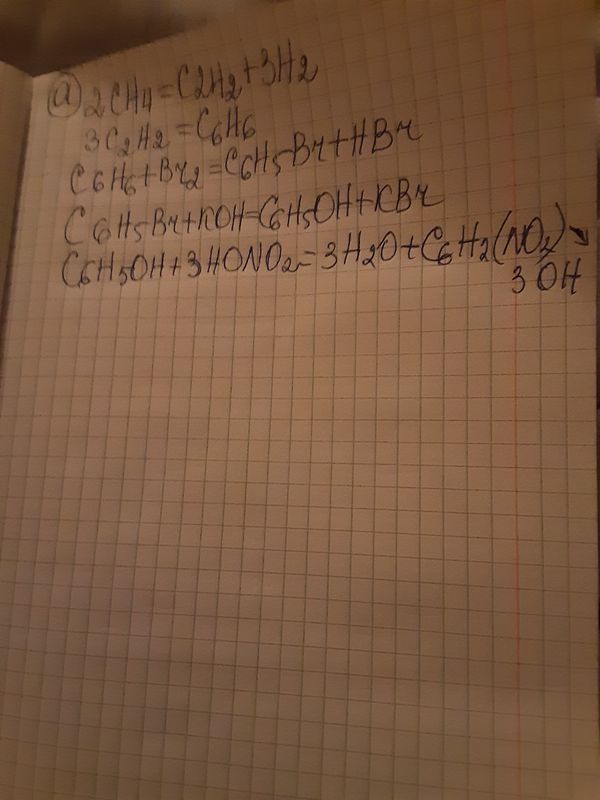 а) 2CH4=C2H2+3H2
3C2H2=C6H6
C6H6+Br2=C6H5Br+HBr
C6H5Br+KOH=C6H5OH+KBr
C6H5OH+3HONO2=3H2O+C6H2(NO2)
3OH